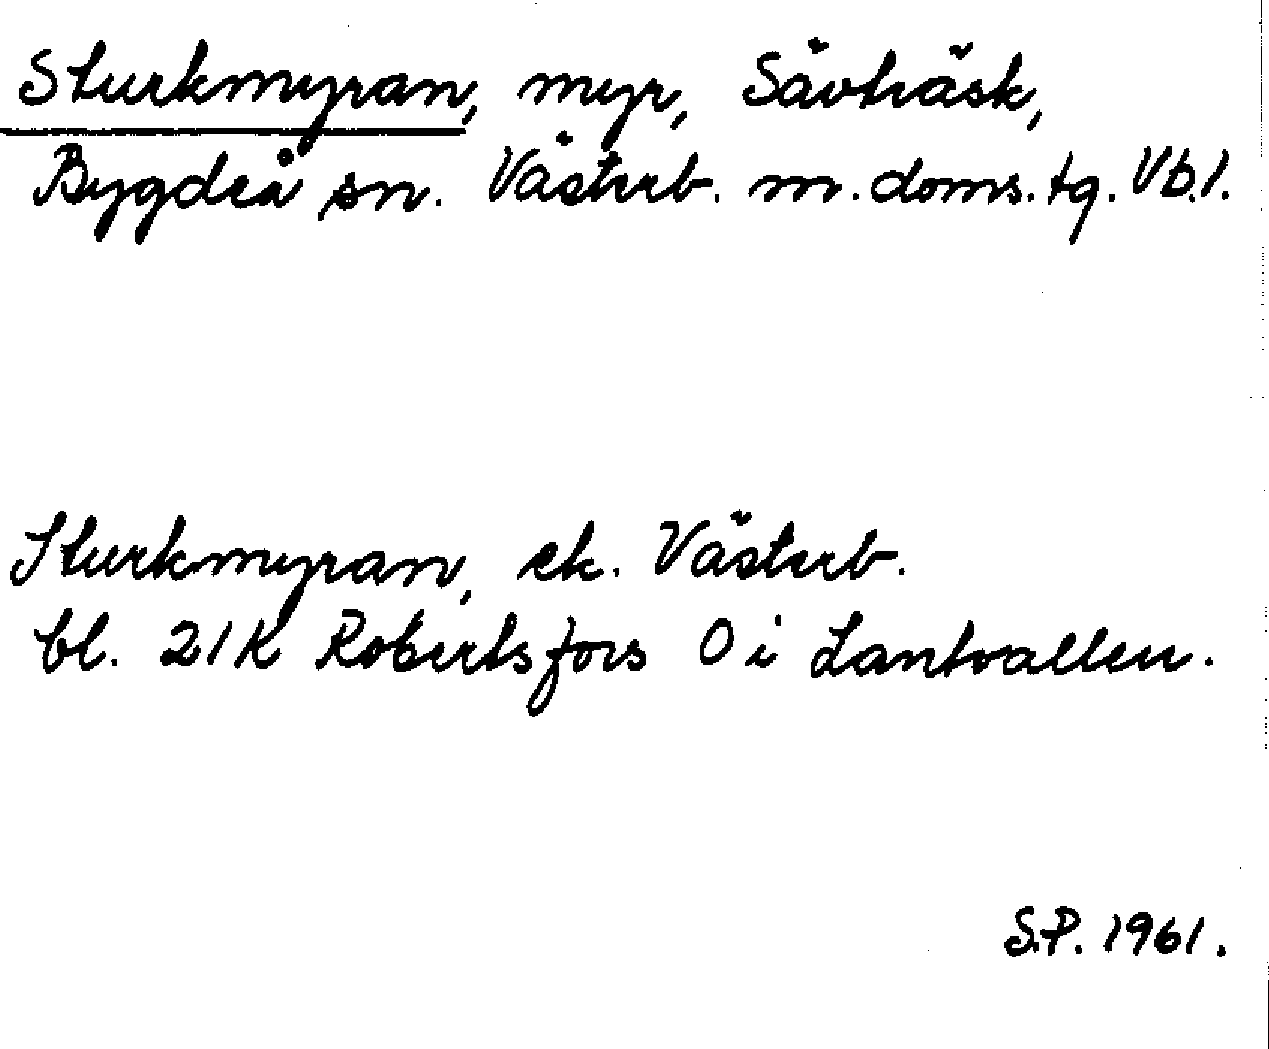 Sturkmyran, myr, Sävträsk,
Bygdeå sn. Västerb. m. doms. tg. Vb. l.
Sturkmyran, ek. Västerb.
bl. 21K Robertsfors O i Lantvallen.
S.P. 1961.